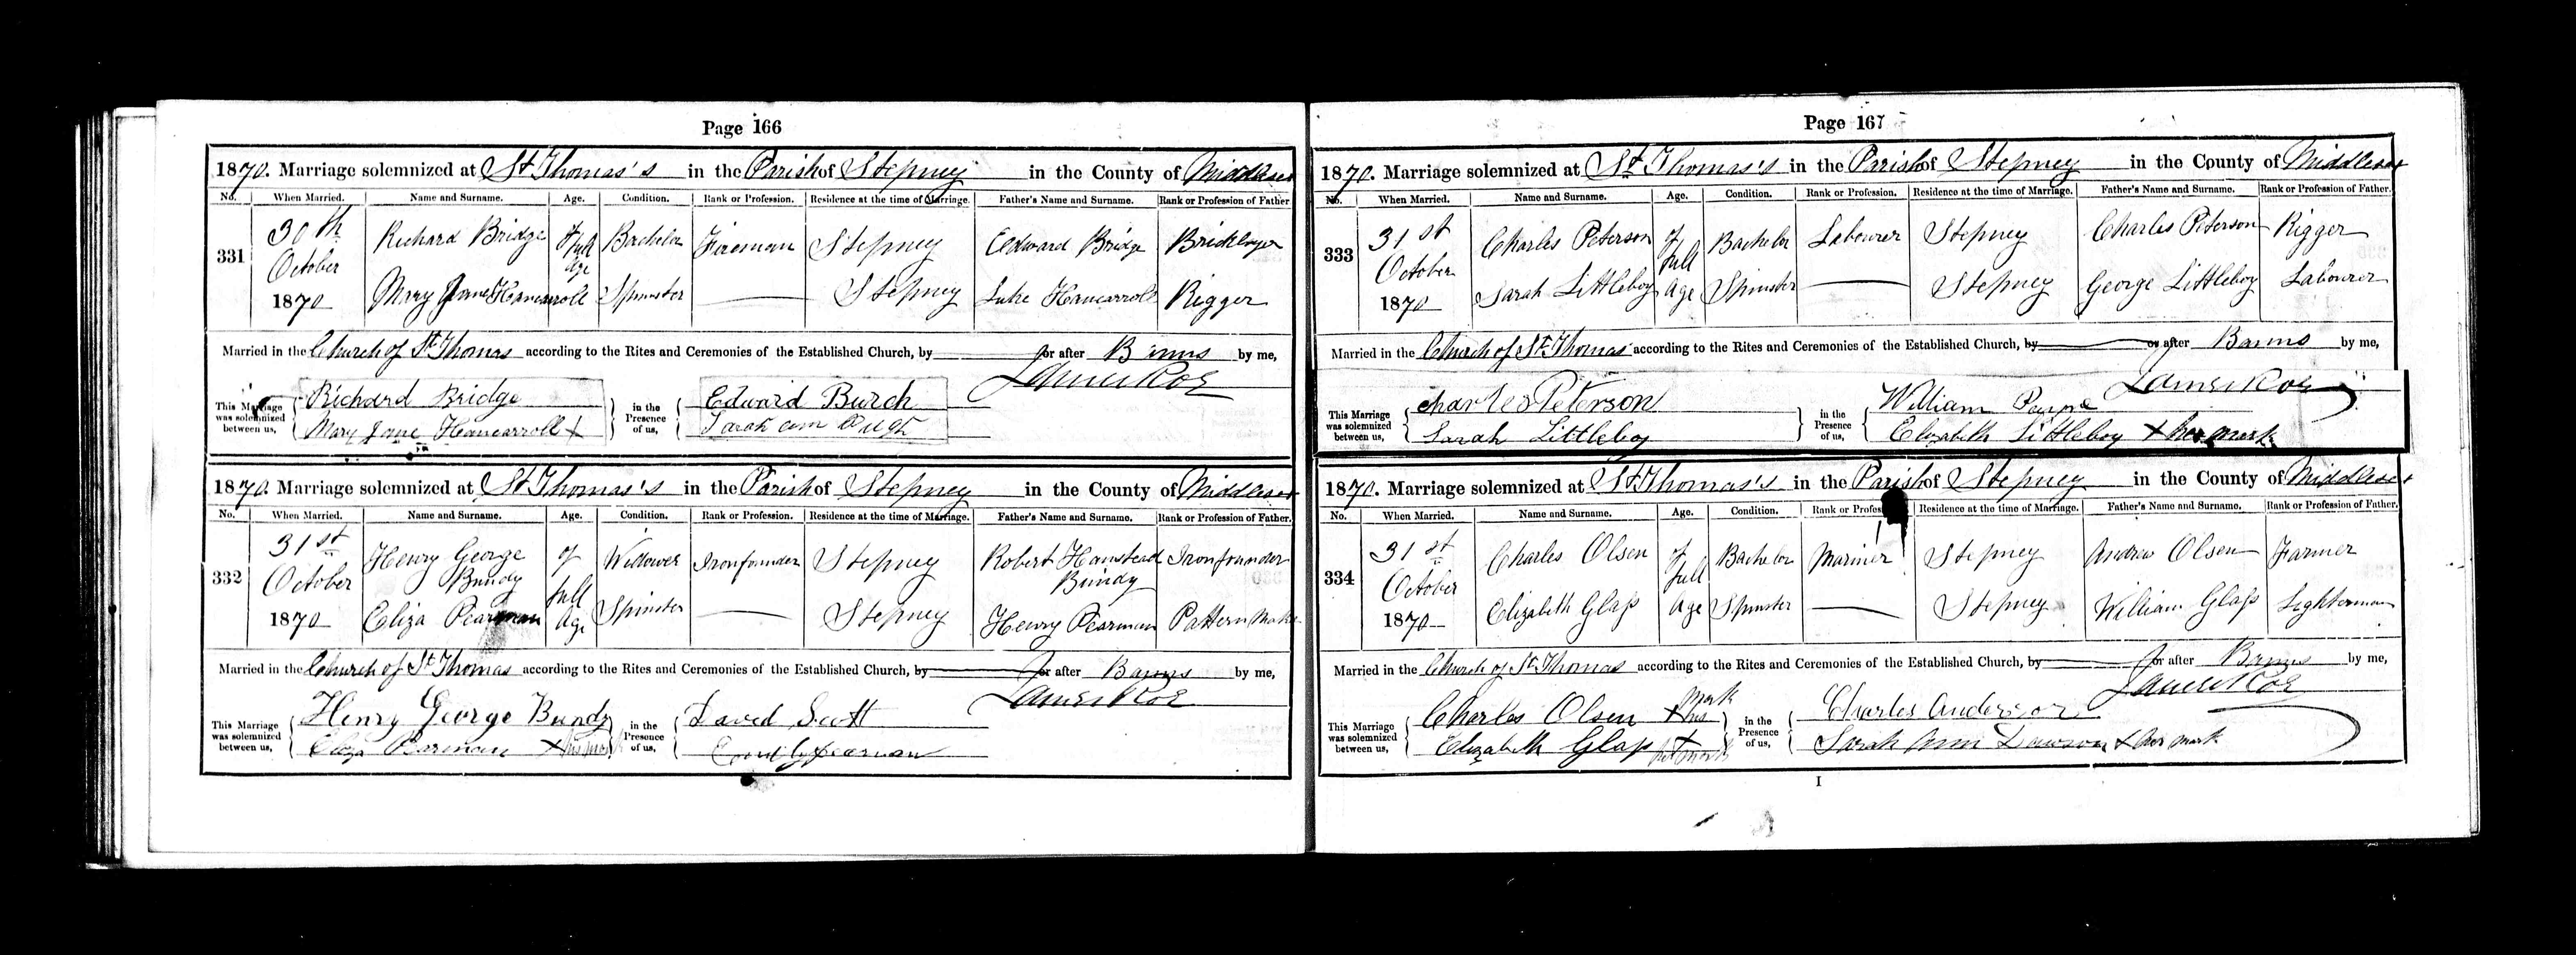 Page 166
1870. Marriage solemnized at St Thomas's in the Parish of Stepney in the County of Middlesex
No. When Married. Name and Surname. Age. Condition. Rank or Profession. Residence at the time of Marriage. Father's Name and Surname. Rank or Profession of Father.
331 30th October 1870 Richard Bridge of full age Bachelor Fireman Stepney Edward Bridge Bricklayer
Mary Jane Hancarroll Spinster — Stepney Luke Hancarroll Rigger
Married in the Church of St Thomas according to the Rites and Ceremonies of the Established Church, by or after Banns by me,
James Roe
This Marriage was solemnized between us, Richard Bridge in the Presence of us, Edward Burch
Mary Jane Hancarroll X Sarah
1870. Marriage solemnized at St Thomas's in the Parish of Stepney in the County of Middlesex
No. When Married. Name and Surname. Age. Condition. Rank or Profession. Residence at the time of Marriage. Father's Name and Surname. Rank or Profession of Father.
332 31st October 1870 Henry George Bundy of full Age Widower Ironfounder Stepney Robert Hamstead Bundy Ironfounder
Eliza Pearman Spinster — Stepney Henry Pearman Pattern Maker
Married in the Church of St Thomas according to the Rites and Ceremonies of the Established Church, by or after Banns by me,
James Roe
This Marriage was solemnized between us, Henry George Bundy in the Presence of us, David Scott
Eliza Pearman X Pearman
Page 167
1870. Marriage solemnized at St Thomas's in the Parish of Stepney in the County of Middlesex
No. When Married. Name and Surname. Age. Condition. Rank or Profession. Residence at the time of Marriage. Father's Name and Surname. Rank or Profession of Father.
333 31st October 1870 Charles Peterson of full Age Bachelor Labourer Stepney Charles Peterson Rigger
Sarah Littleboy Spinster — Stepney George Littleboy Labourer
Married in the Church of St Thomas according to the Rites and Ceremonies of the Established Church, by or after Banns by me,
James Roe
This Marriage was solemnized between us, Charles Peterson in the Presence of us, William Payne
Sarah Littleboy Elizabeth Littleboy X her mark
1870. Marriage solemnized at St Thomas's in the Parish of Stepney in the County of Middlesex
No. When Married. Name and Surname. Age. Condition. Rank or Profession. Residence at the time of Marriage. Father's Name and Surname. Rank or Profession of Father.
334 31st October 1870 Charles Olsen of full Age Bachelor Mariner Stepney Andrew Olsen Farmer
Elizabeth Glass Spinster — Stepney William Glass Lighterman
Married in the Church of St Thomas according to the Rites and Ceremonies of the Established Church, by or after Banns by me,
James Roe
This Marriage was solemnized between us, Charles Olsen X his mark in the Presence of us, Charles Anderson
Elizabeth Glass X her mark Sarah Ann Dawson X her mark
I